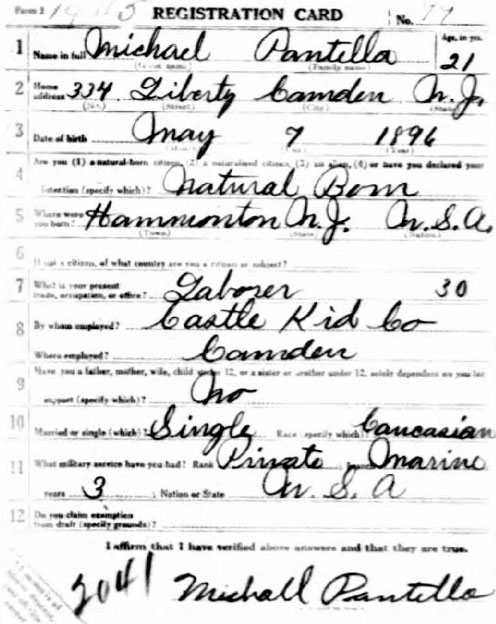 Form 1 REGISTRATION CARD No. 77
1 Name in full Michael Pantella Age, in yrs. 21
(Given name) (Family name)
2 Home address 334 Liberty Camden N.J.
(No.) (Street) (City) (State)
3 Date of birth May 7 1896
(Year)
4 Are you (1) a natural-born citizen, (2) a naturalized citizen, (3) an alien, (4) or have you declared your
intention (specify which)? Natural Born
5 Where were you born? Hammonton N.J. U.S.A.
(Town) (State) (Nation)
6 If not a citizen, of what country are you a citizen or subject?
7 What is your present trade, occupation, or office? Laborer 30
8 By whom employed? Castle Kid Co
Where employed? Camden
9 Have you a father, mother, wife, child under 12, or a sister or brother under 12, solely dependent on you for
support (specify which)? No
10 Married or single (which)? Single Race (specify which) Caucasian
11 What military service have you had? Rank Private branch Marine
years 3 ; Nation or State U.S.A
12 Do you claim exemption from draft (specify grounds)?
I affirm that I have verified above answers and that they are true.
2041 Michall Pantella